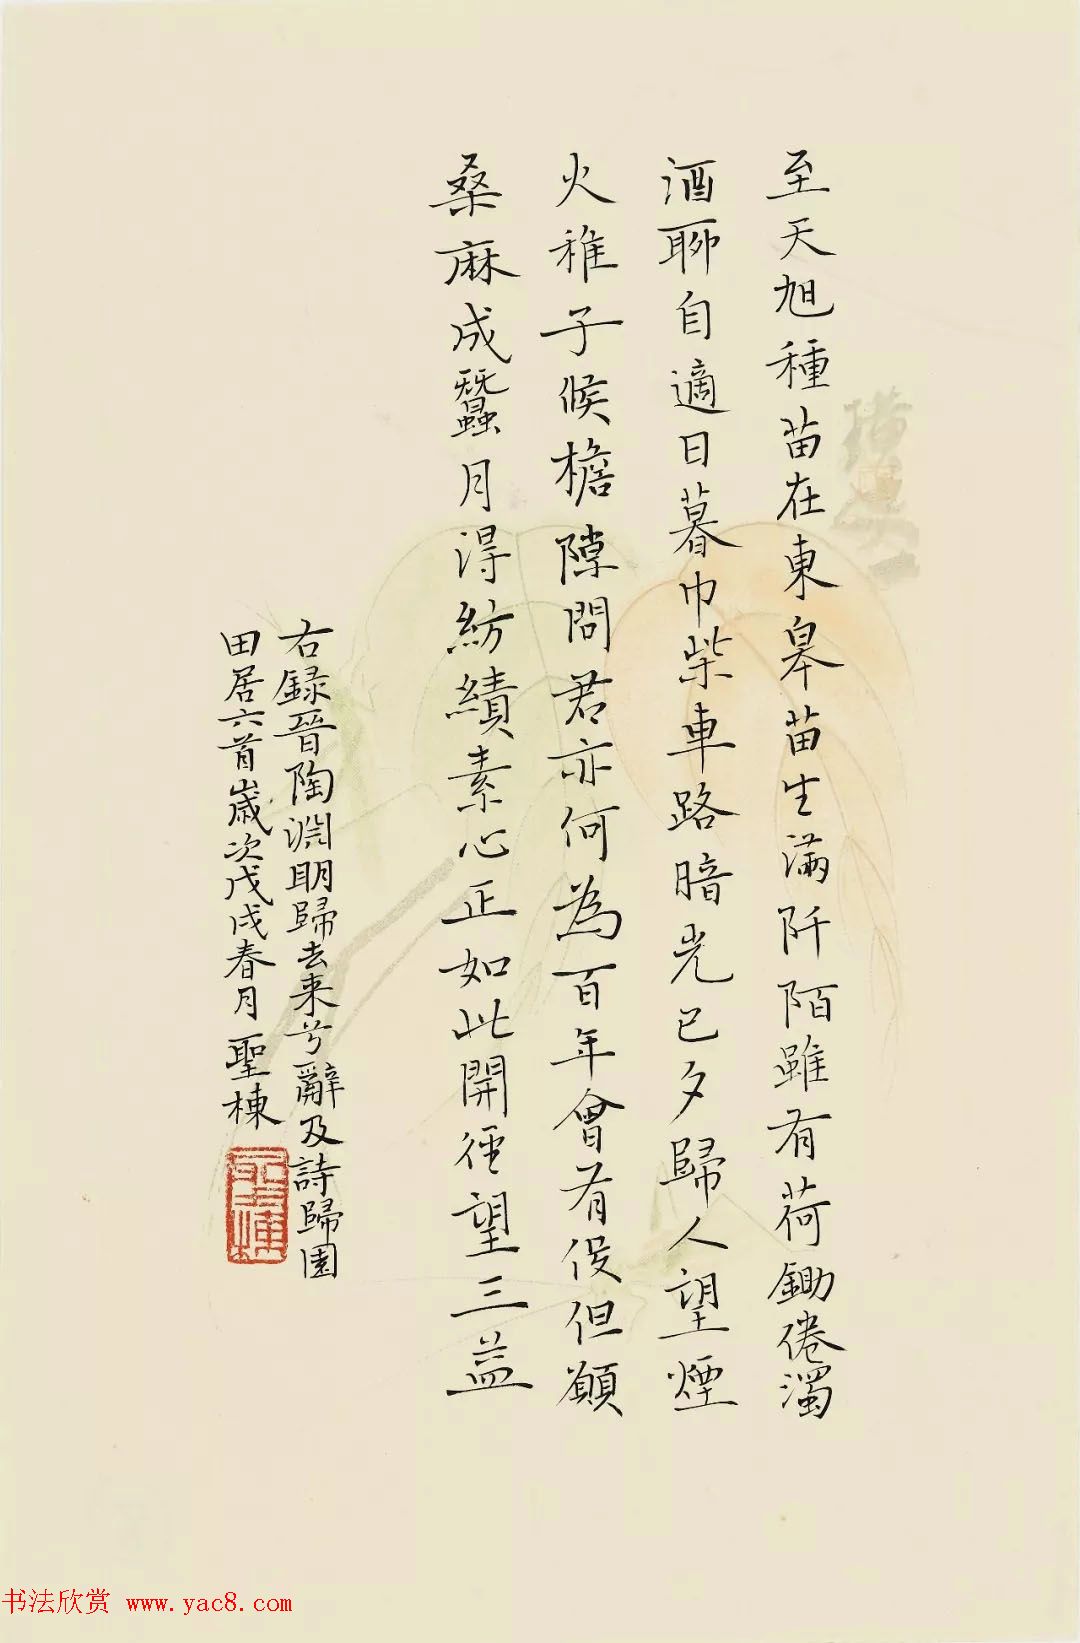 至天旭種苗在東皋苗生滿阡陌雖有荷鋤倦濁
酒聊自適日暮巾柴車路暗光已夕歸人望煙
火稚子候檐隙問君亦何為百年會有役但願
桑麻成蠶月得紡績素心正如此開徑望三益
右録晉陶淵明歸去来兮辭及詩歸園
田居六首歲次戊戌春月聖棟
书法欣赏 www.yac8.com